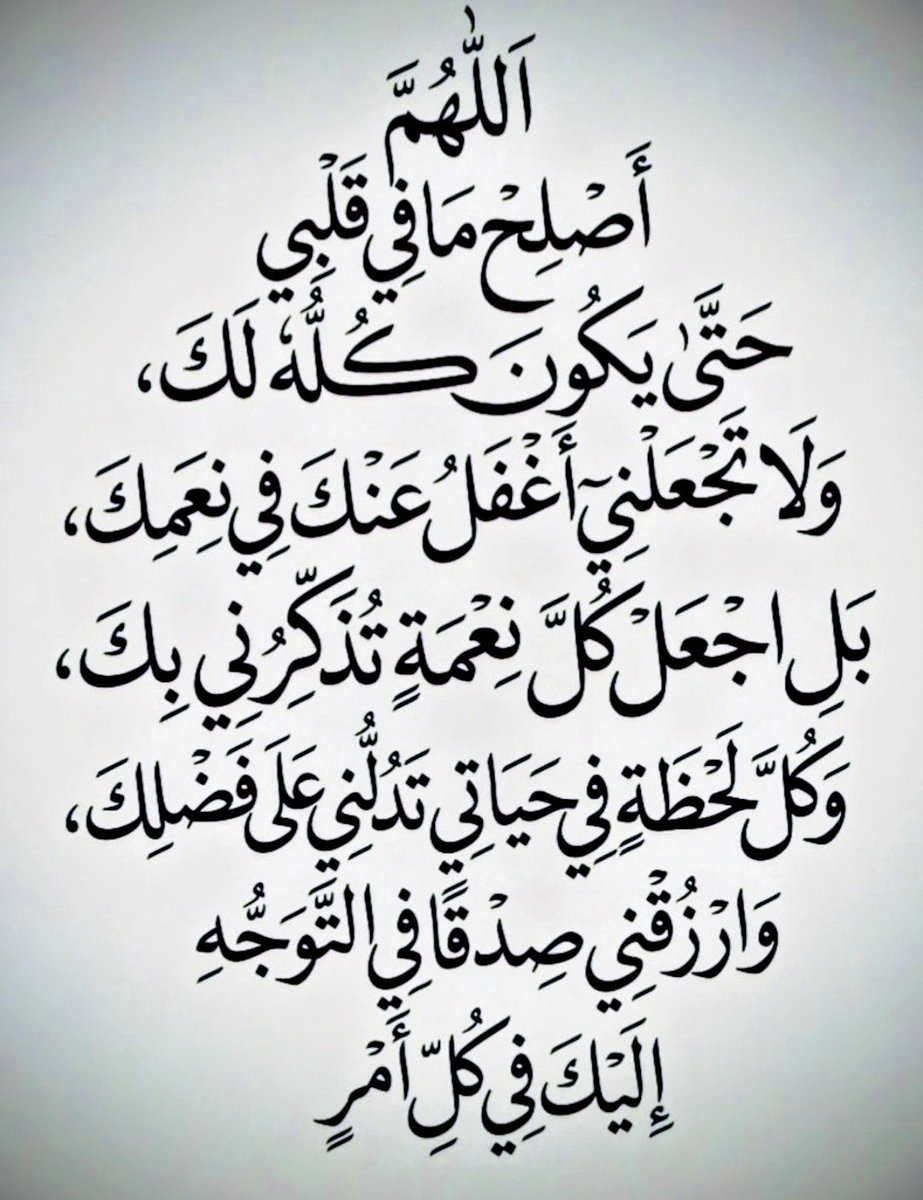 اَللّٰهُمَّ
أَصْلِحْ مَا فِي قَلْبِي
حَتَّىٰ يَكُونَ كُلُّهُ لَكَ،
وَلَا تَجْعَلْنِيٓ أَغْفَلُ عَنْكَ فِي نِعَمِكَ،
بَلِ اجْعَلْ كُلَّ نِعْمَةٍ تُذَكِّرُنِي بِكَ،
وَكُلَّ لَحْظَةٍ فِي حَيَاتِي تَدُلُّنِي عَلَى فَضْلِكَ،
وَارْزُقْنِي صِدْقًا فِي التَّوَجُّهِ
إِلَيْكَ فِي كُلِّ أَمْرٍ